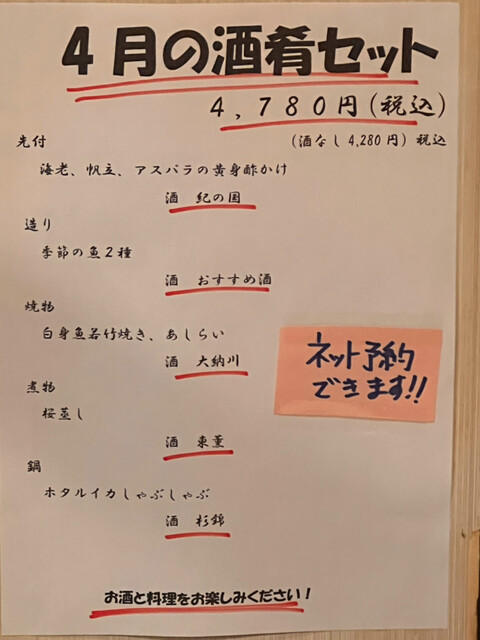 4月の酒肴セット
4,780円(税込)
先付
(酒なし4,280円) 税込
海老、帆立、アスパラの黄身酢かけ
酒 紀の国
造り
季節の魚2種
酒 おすすめ酒
焼物
白身魚若竹焼き、あしらい
酒 大納川
煮物
桜蒸し
酒 東薫
鍋
ホタルイカしゃぶしゃぶ
酒 杉錦
ネット予約
できます!!
お酒と料理をお楽しみください!